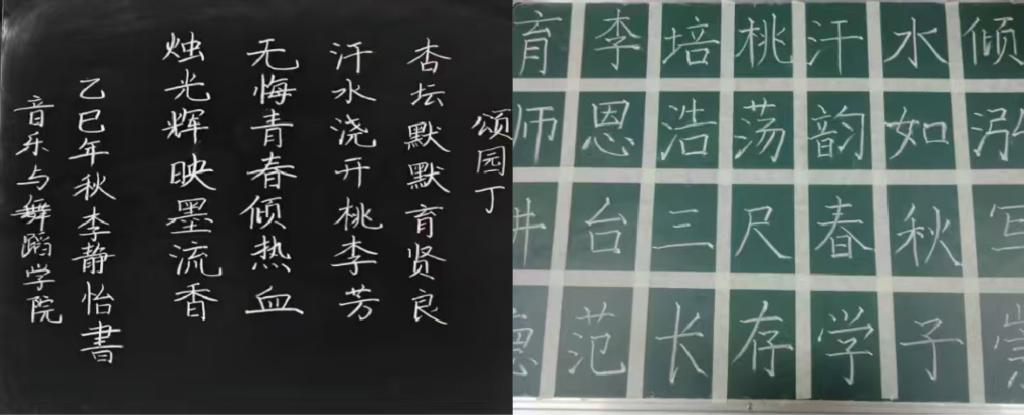 颂园丁
杏坛默默育贤良
汗水浇开桃李芳
无悔青春倾热血
烛光辉映墨流香
乙巳年秋李静怡書
音乐与舞蹈学院
育李培桃汗水倾
师恩浩荡韵如泓
讲台三尺春秋写
德范长存学子崇